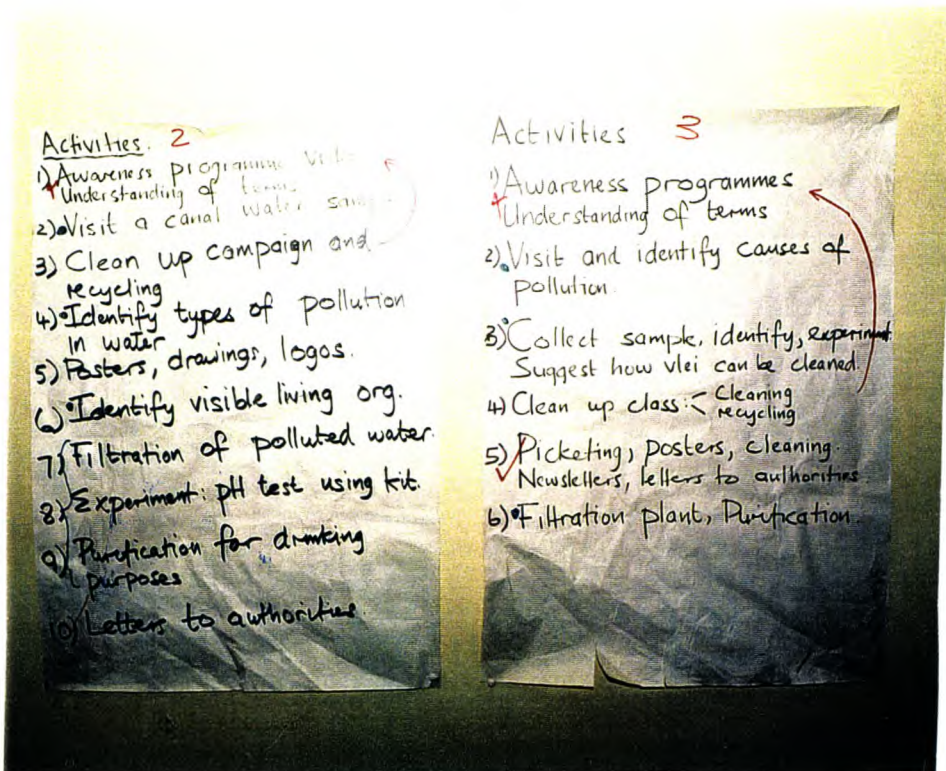 Activities. 2
1) Awareness programme
+ Understanding of terms
2) • Visit a canal water
3) Clean up campaign and
recycling
4) • Identify types of pollution
in water
5) Posters, drawings, logos.
6) • Identify visible living org.
7) Filtration of polluted water.
8) Experiment: pH test using kit.
9) Purification for drinking
purposes
10) Letters to authorities.
Activities 3
1) Awareness programmes
+ Understanding of terms
2) • Visit and identify causes of
pollution.
3) • Collect sample, identify, experiment.
Suggest how vlei can be cleaned.
4) Clean up class: < Cleaning
recycling
5) Picketing, posters, cleaning.
✓ Newsletters, letters to authorities
6) • Filtration plant, Purification.